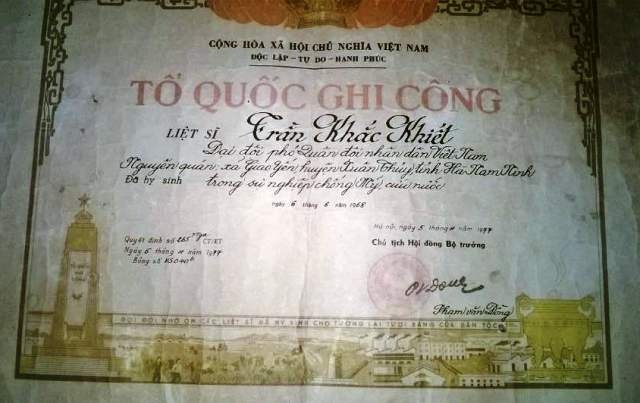 CỘNG HÒA XÃ HỘI CHỦ NGHĨA VIỆT NAM
ĐỘC LẬP - TỰ DO - HẠNH PHÚC
TỔ QUỐC GHI CÔNG
LIỆT SĨ Trần Khắc Khiết
Đại đội phó Quân đội nhân dân Việt Nam
Nguyên quán xã Giao Yến huyện Xuân Thủy tỉnh Hà Nam Ninh
Đã hy sinh trong sự nghiệp chống Mỹ, cứu nước
ngày 6 tháng 6 năm 1968
Quyết định số 265 CT/KT
Ngày 5 tháng năm 1977
Bằng số
Hà Nội, ngày 5 tháng năm 1977
Chủ tịch Hội đồng Bộ trưởng
Phạm Văn Đồng
ĐỜI ĐỜI NHỚ ƠN CÁC LIỆT SĨ ĐÃ HY SINH CHO TƯƠNG LAI TƯƠI SÁNG CỦA DÂN TỘC